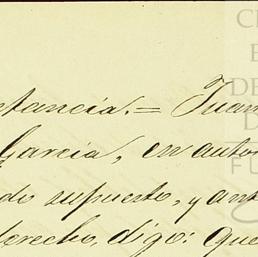 stancia. = Juan
Garcia, en autor
do supuesto, y ant
derecho, digo: que